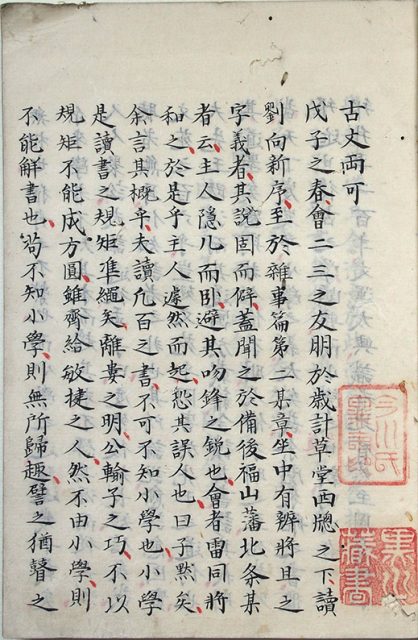 古文両可
戊子之春會二三之友朋於歳計草堂西牕之下讀
劉向新序至於雜事篇第二某章坐中有辨將且之
字義者其說固而僻蓋聞之於備後福山藩北条某
者云主人隠几而卧避其吻鋒之鋭也會者雷同將
和之於是乎主人遽然而起惌其誤人也曰子黙矣
余言其概乎夫讀凢百之書不可不知小學也小學
是讀書之規矩準繩矣離婁之明公輸子之巧不以
規矩不能成方圓雖齊給敏捷之人然不由小學則
不能解書也苟不知小學則無所歸趣譬之猶瞽之
今川氏
黒川
藏書